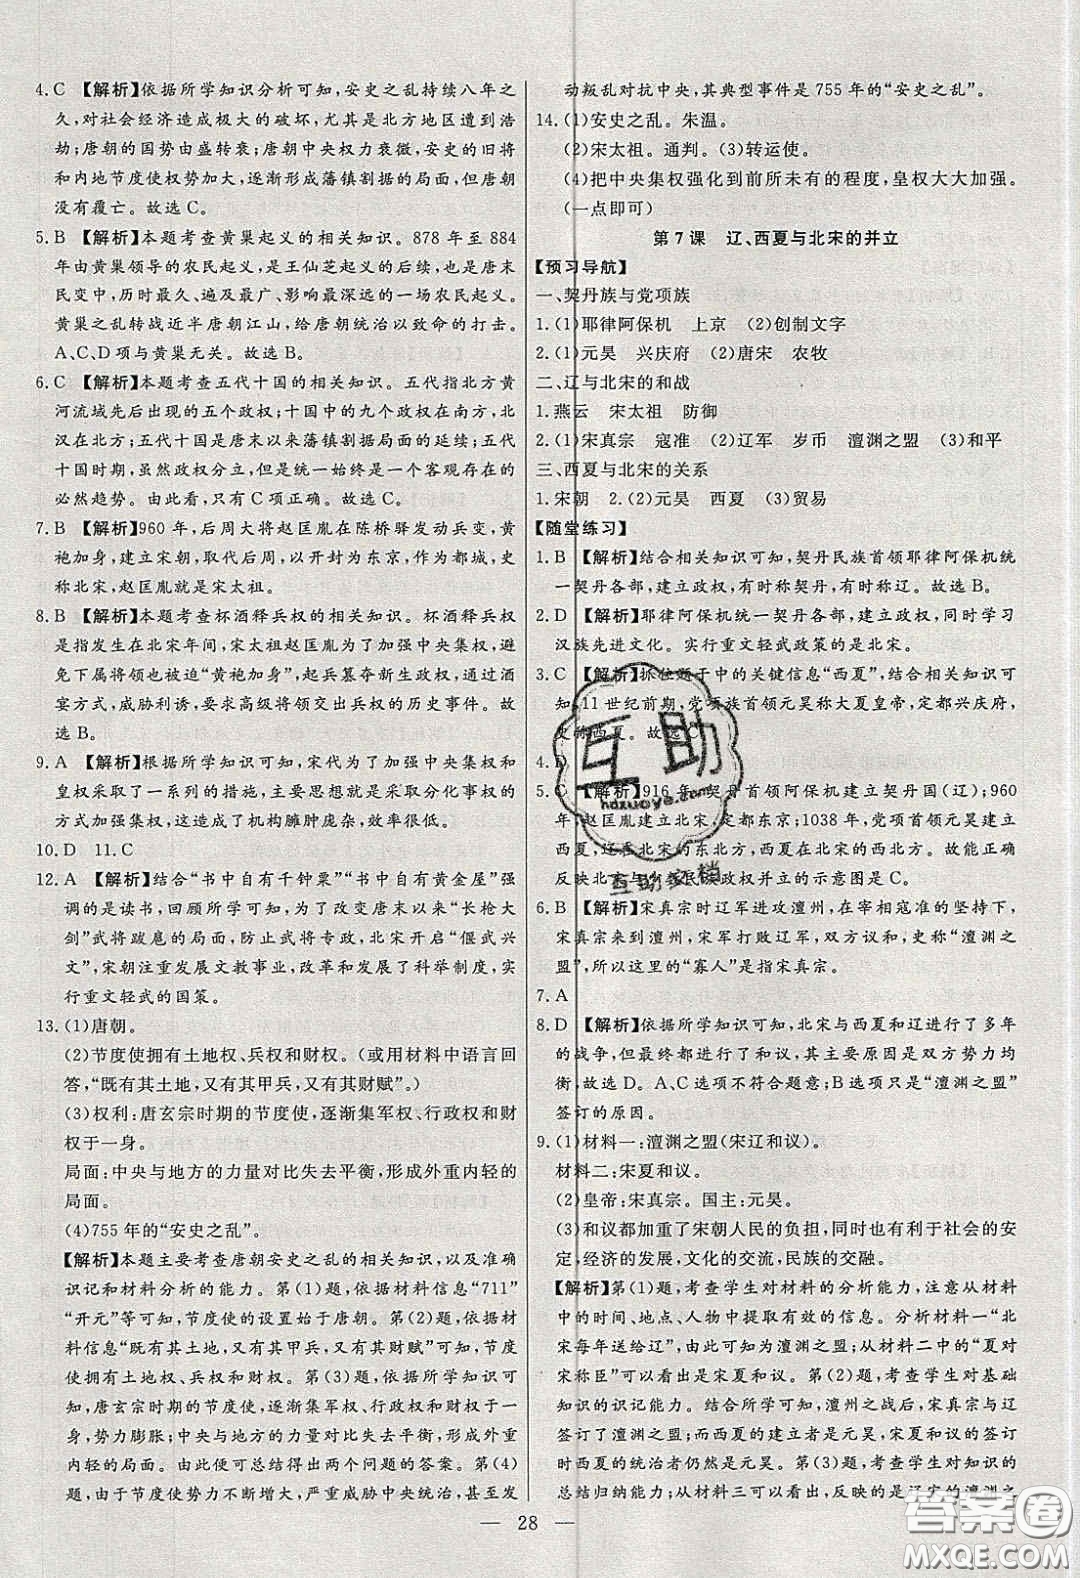 4. C 【解析】依据所学知识分析可知,安史之乱持续八年之
久,对社会经济造成极大的破坏,尤其是北方地区遭到浩
劫;唐朝的国势由盛转衰;唐朝中央权力衰微,安史的旧将
和内地节度使权势力大,逐渐形成藩镇割据的局面,但唐朝
没有覆亡。故选C。
5. B 【解析】本题考查黄巢起义的相关知识。878 年至 884
年由黄巢领导的农民起义,是王仙芝起义的后继,也是唐末
民变中,历时最久、遍及最广、影响最深远的一场农民起义。
黄巢之乱转战近半唐朝江山,给唐朝统治以致命的打击。
A、C、D 项与黄巢无关。故选 B。
6. C 【解析】本题考查五代十国的相关知识。五代指北方黄
河流域先后出现的五个政权;十国中的九个政权在南方,北
汉在北方;五代十国是唐末以来藩镇割据局面的延续;五代
十国时期,虽然政权分立,但统一始终是一个客观存在的
必然趋势。由此看,只有 C 项正确。故选 C。
7. B 【解析】960 年,后周大将赵匡胤在陈桥驿发动兵变,黄
袍加身,建立宋朝,取代后周,以开封为东京,作为都城,史
称北宋,赵匡胤就是宋太祖。
8. B 【解析】本题考查杯酒释兵权的相关知识。杯酒释兵权
是指发生在北宋年间,宋太祖赵匡胤为了加强中央集权,避
免下属将领也被迫“黄袍加身”,起兵篡夺新生政权,通过酒
宴方式,威胁利诱,要求高级将领交出兵权的历史事件。故
选 B。
9. A 【解析】根据所学知识可知,宋代为了加强中央集权和
皇权采取了一系列的措施,主要思想就是采取分化事权的
方式加强集权,这造成了机构臃肿庞杂,效率很低。
10. D 11. C
12. A 【解析】结合“书中自有千钟粟”“书中自有黄金屋”强
调的是读书,回顾所学可知,为了改变唐末以来“长枪大
剑”武将跋扈的局面,防止武将专政,北宋开启“偃武兴
文”,宋朝注重发展文教事业,改革和发展了科举制度,实
行重文轻武的国策。
13. (1)唐朝。
(2)节度使拥有土地权、兵权和财权。(或用材料中语言回
答,“既有其土地,又有其甲兵,又有其财赋”。)
(3)权利:唐玄宗时期的节度使,逐渐集军权、行政权和财
权于一身。
局面:中央与地方的力量对比失去平衡,形成外重内轻的
局面。
(4)755 年的“安史之乱”。
【解析】本题主要考查唐朝安史之乱的相关知识,以及准确
识记和材料分析的能力。第(1)题,依据材料信息“711”
“开元”等可知,节度使的设置始于唐朝。第(2)题,依据材
料信息“既有其土地,又有其甲兵,又有其财赋”可知,节度
使拥有土地权、兵权和财权。第(3)题,依据所学知识可
得,唐玄宗时期的节度使,逐渐集军权、行政权和财权于一
身,势力膨胀;中央与地方的力量对比失去平衡,形成外重
内轻的局面。由此便可总结得出两问的答案。第(4)
题,由于节度使势力不断增大,严重威胁中央统治,甚至发
动叛乱对抗中央,其典型事件是 755 年的“安史之乱”。
14. (1)安史之乱。朱温。
(2)宋太祖。通判。(3)转运使。
(4)把中央集权强化到前所未有的程度,皇权大大加强。
(一点即可)
第 7 课 辽、西夏与北宋的并立
【预习导航】
一、契丹族与党项族
1. (1)耶律阿保机 上京 (2)创制文字
2. (1)元昊 兴庆府 (2)唐宋 农牧
二、辽与北宋的和战
1. 燕云 宋太祖 防御
2. (1)宋真宗 寇准 (2)辽军 岁币 澶渊之盟 (3)和平
三、西夏与北宋的关系
1. 宋朝 2. (2)元昊 西夏 (3)贸易
【随堂练习】
1. B 【解析】结合相关知识可知,契丹民族首领耶律阿保机统
一契丹各部,建立政权,有时称契丹,有时称辽。故选 B。
2. D 【解析】耶律阿保机统一契丹各部,建立政权,同时学习
汉族先进文化。实行重文轻武政策的是北宋。
3. C 【解析】抓住题干中的关键信息“西夏”,结合相关知识可
知,11 世纪前期,党项族首领元昊称大夏皇帝,定都兴庆府,
史称西夏。故选 C。
4. D
5. C 【解析】916 年,契丹首领阿保机建立契丹国(辽);960
年,赵匡胤建立北宋,定都东京;1038 年,党项首领元昊建立
西夏,辽在北宋的东北方,西夏在北宋的西北方,能够正确
反映北宋与少数民族政权并立的示意图是 C。
6. B 【解析】宋真宗时辽军进攻澶州,在宰相寇准的坚持下,
宋真宗来到澶州,宋军打败辽军,双方议和,史称“澶渊之
盟”,所以这里的“寡人”是指宋真宗。
7. A
8. D 【解析】依据所学知识可知,北宋与西夏和辽进行了多年
的战争,但最终都进行了和议,其原因是双方势力均
衡,故选 D。A、C 选项不符合题意;B 选项只是“澶渊之盟”
签订的原因。
9. (1)材料一:澶渊之盟(宋辽和议)。
材料二:宋夏和议。
(2)皇帝:宋真宗。国主:元昊。
(3)和议都加重了宋朝人民的负担,同时也有利于社会的安
定,经济的发展,文化的交流,民族的交融。
【解析】第(1)题,考查学生对材料的分析能力,注意从材料
中的时间、地点、人物中提取有效的信息。分析材料一“北
宋每年送给辽”,可知这是澶渊之盟的内容;材料二中的“夏
对宋称臣”,可知这是宋夏和议。第(2)题,考查学生对基础
知识的识记能力。结合所学可知,澶州之战后,宋真宗与辽
签订了澶渊之盟;而西夏的建立者是元昊,宋夏和议的签订
时西夏的统治者仍然是元昊。第(3)题,考查学生对知识的
总结归纳能力;从材料三可以看出,反映的是辽宋的澶渊之
互助
hdzuoye.com
互助文档
28
答案圈
MXQE.COM